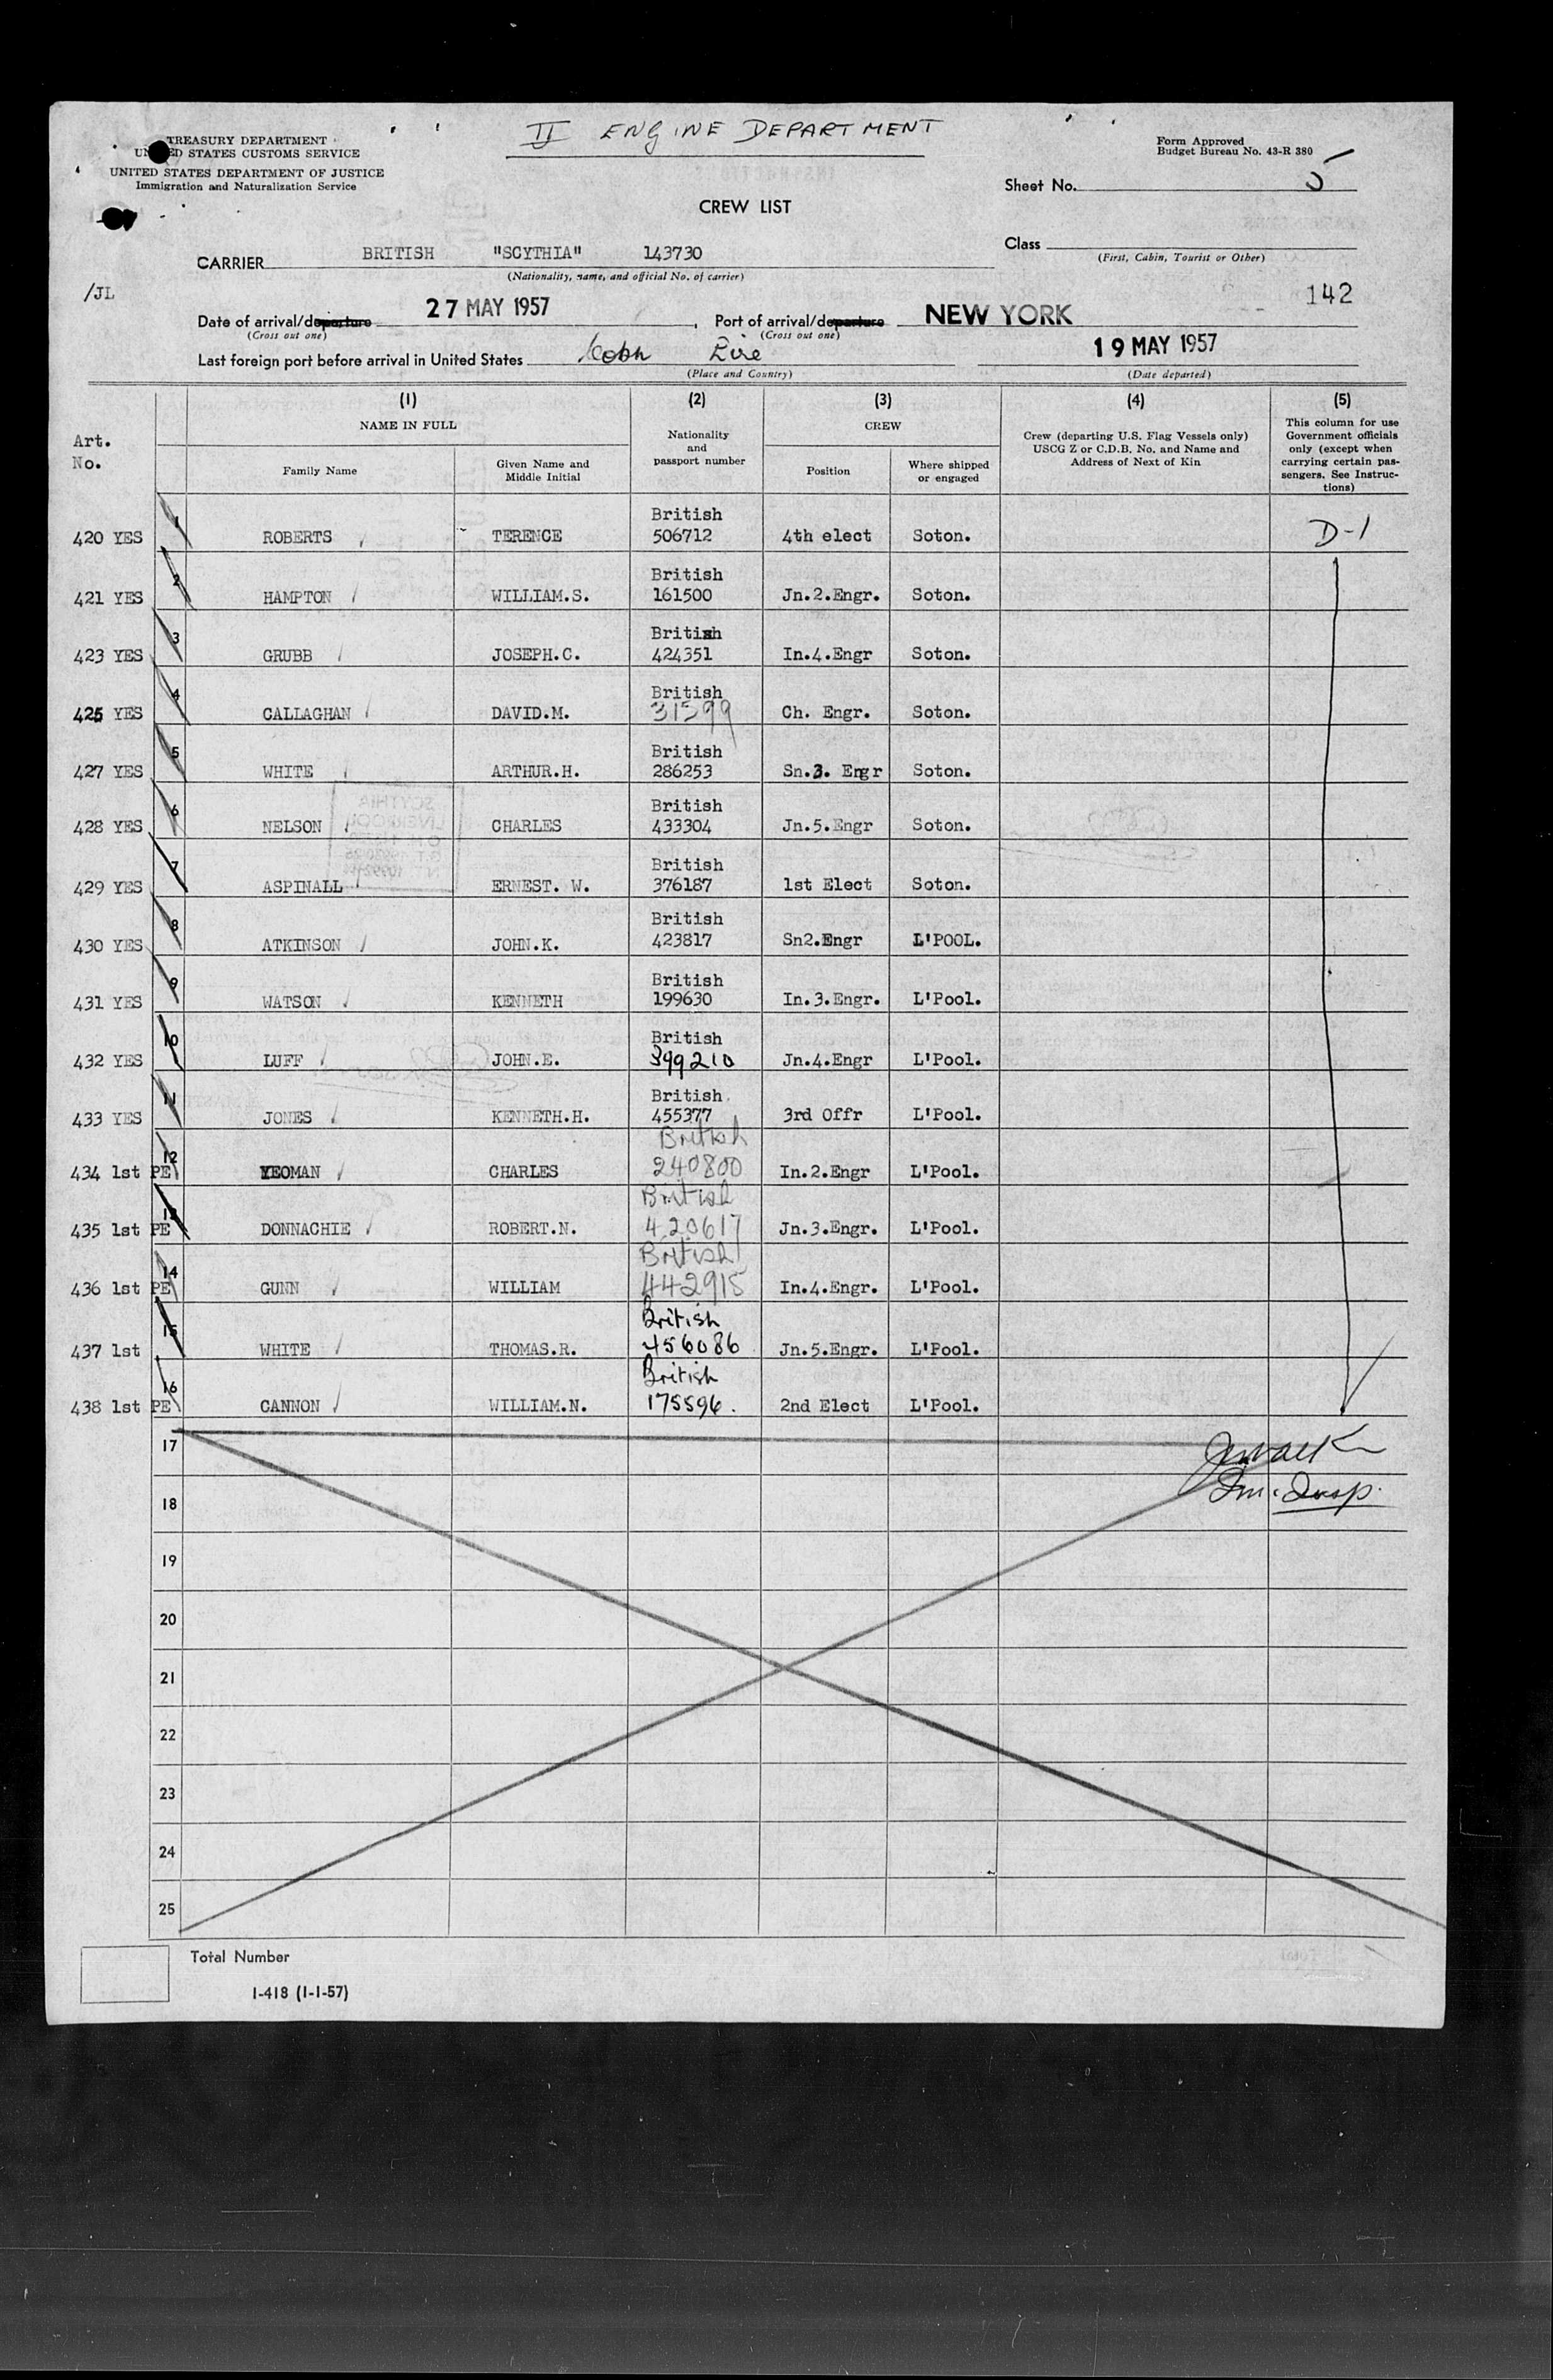 II ENGINE DEPARTMENT
TREASURY DEPARTMENT
UNITED STATES CUSTOMS SERVICE
UNITED STATES DEPARTMENT OF JUSTICE
Immigration and Naturalization Service
Form Approved
Budget Bureau No. 43-R 380
Sheet No. 5
CREW LIST
Class
(First, Cabin, Tourist or Other)
CARRIER BRITISH "SCYTHIA" 143730
(Nationality, name, and official No. of carrier)
/JL
142
Date of arrival/departure 27 MAY 1957, Port of arrival/departure NEW YORK
(Cross out one) (Cross out one)
Last foreign port before arrival in United States Cobh Eire 19 MAY 1957
(Place and Country) (Date departed)
Art. No.
(1) (2) (3) (4) (5)
NAME IN FULL
Family Name
Given Name and Middle Initial
Nationality and passport number
CREW
Position
Where shipped or engaged
Crew (departing U.S. Flag Vessels only) USCG Z or C.D.B. No. and Name and Address of Next of Kin
This column for use Government officials only (except when carrying certain passengers. See Instructions)
420 YES 1 ROBERTS TERENCE British 506712 4th elect Soton. D-1
421 YES 2 HAMPTON WILLIAM.S. British 161500 Jn.2.Engr. Soton.
423 YES 3 GRUBB JOSEPH.C. British 424351 In.4.Engr Soton.
425 YES 4 CALLAGHAN DAVID.M. British Ch. Engr. Soton.
427 YES 5 WHITE ARTHUR.H. British 286253 Sn.3. Engr Soton.
428 YES 6 NELSON CHARLES British 433304 Jn.5.Engr Soton.
429 YES 7 ASPINALL ERNEST. W. British 376187 1st Elect Soton.
430 YES 8 ATKINSON JOHN.K. British 423817 Sn2.Engr L'POOL.
431 YES 9 WATSON KENNETH British 199630 In.3.Engr. L'Pool.
432 YES 10 LUFF JOHN.E. British 399210 Jn.4.Engr L'Pool.
433 YES 11 JONES KENNETH.H. British 455377 3rd Offr L'Pool.
434 1st PE 12 YEOMAN CHARLES British 240800 In.2.Engr L'Pool.
435 1st PE 13 DONNACHIE ROBERT.N. British 420617 Jn.3.Engr. L'Pool.
436 1st PE 14 GUNN WILLIAM British 442915 In.4.Engr. L'Pool.
437 1st 15 WHITE THOMAS.R. British 456086 Jn.5.Engr. L'Pool.
438 1st PE 16 CANNON WILLIAM.N. British 175596. 2nd Elect L'Pool.
17
Imm. Insp.
18
19
20
21
22
23
24
25
Total Number
I-418 (1-1-57)